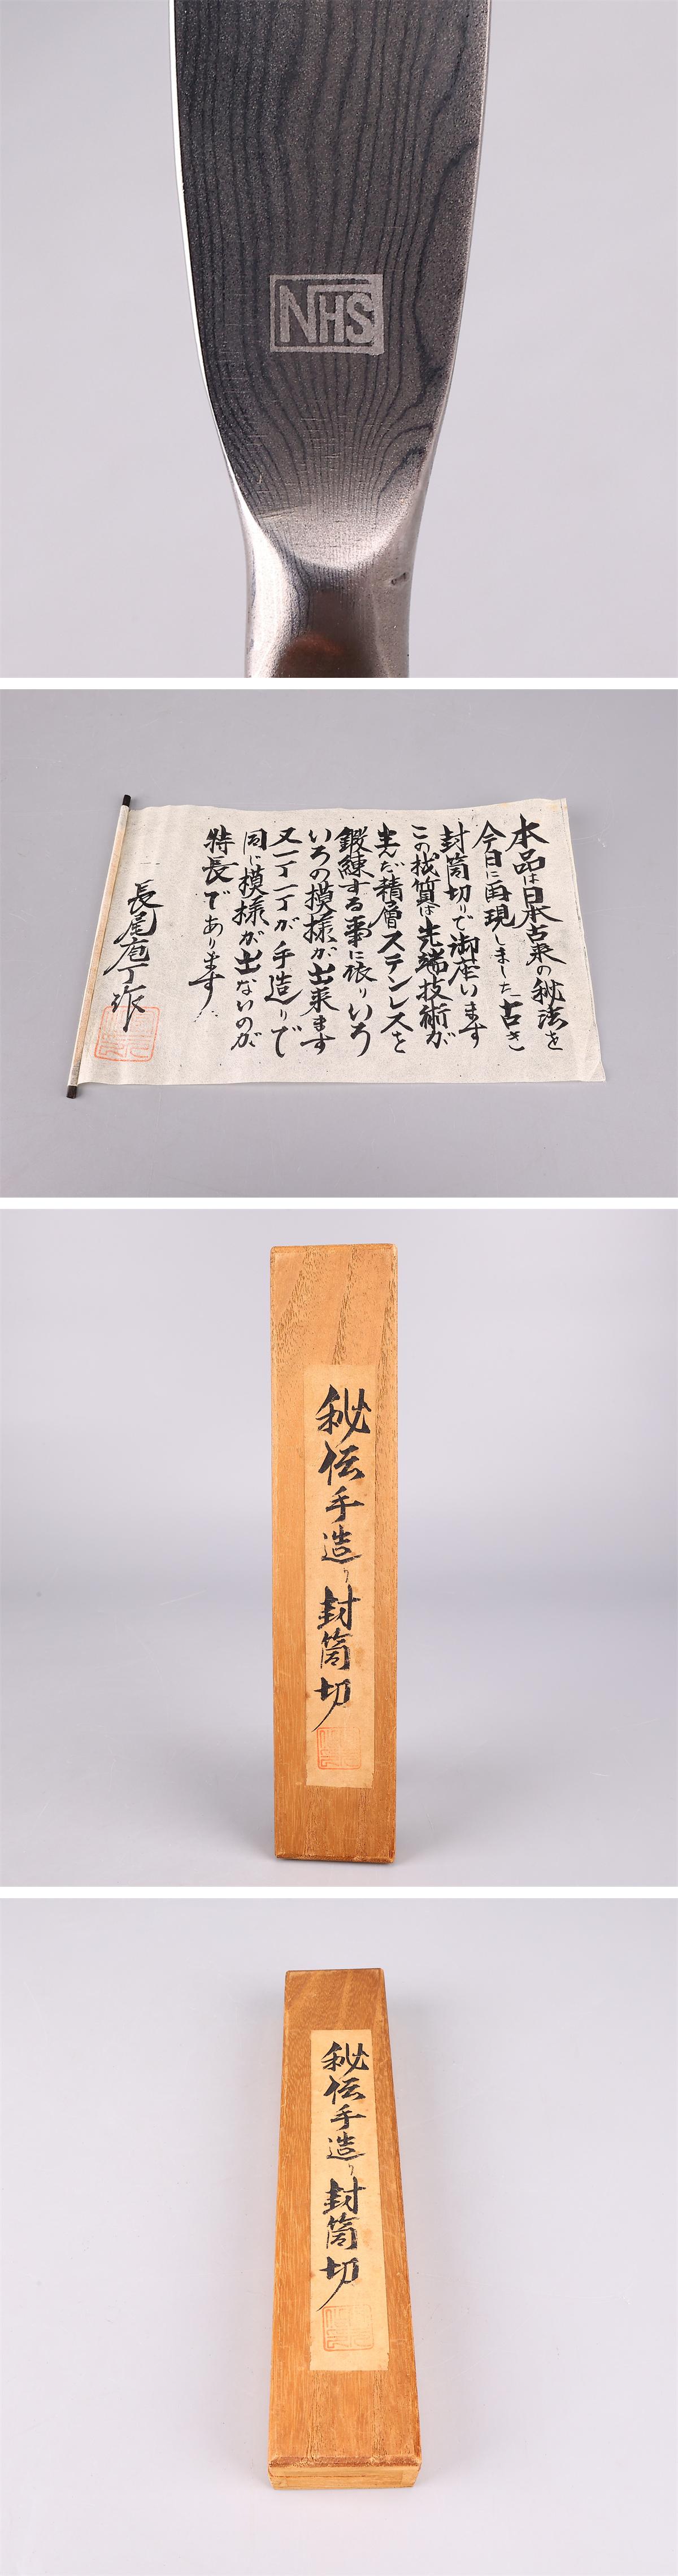 NHS
本品は日本古来の秘法を
今日に再現しました古き
封筒切りで御座います
この材質は先端技術が
生んだ積層ステンレスを
鍛練する事に依りいろ
いろの模様が出来ます
又一丁一丁が手造りで
同じ模様が出ないのが
特長であります
長尾庖丁作
秘伝手造り封筒切
秘伝手造り封筒切